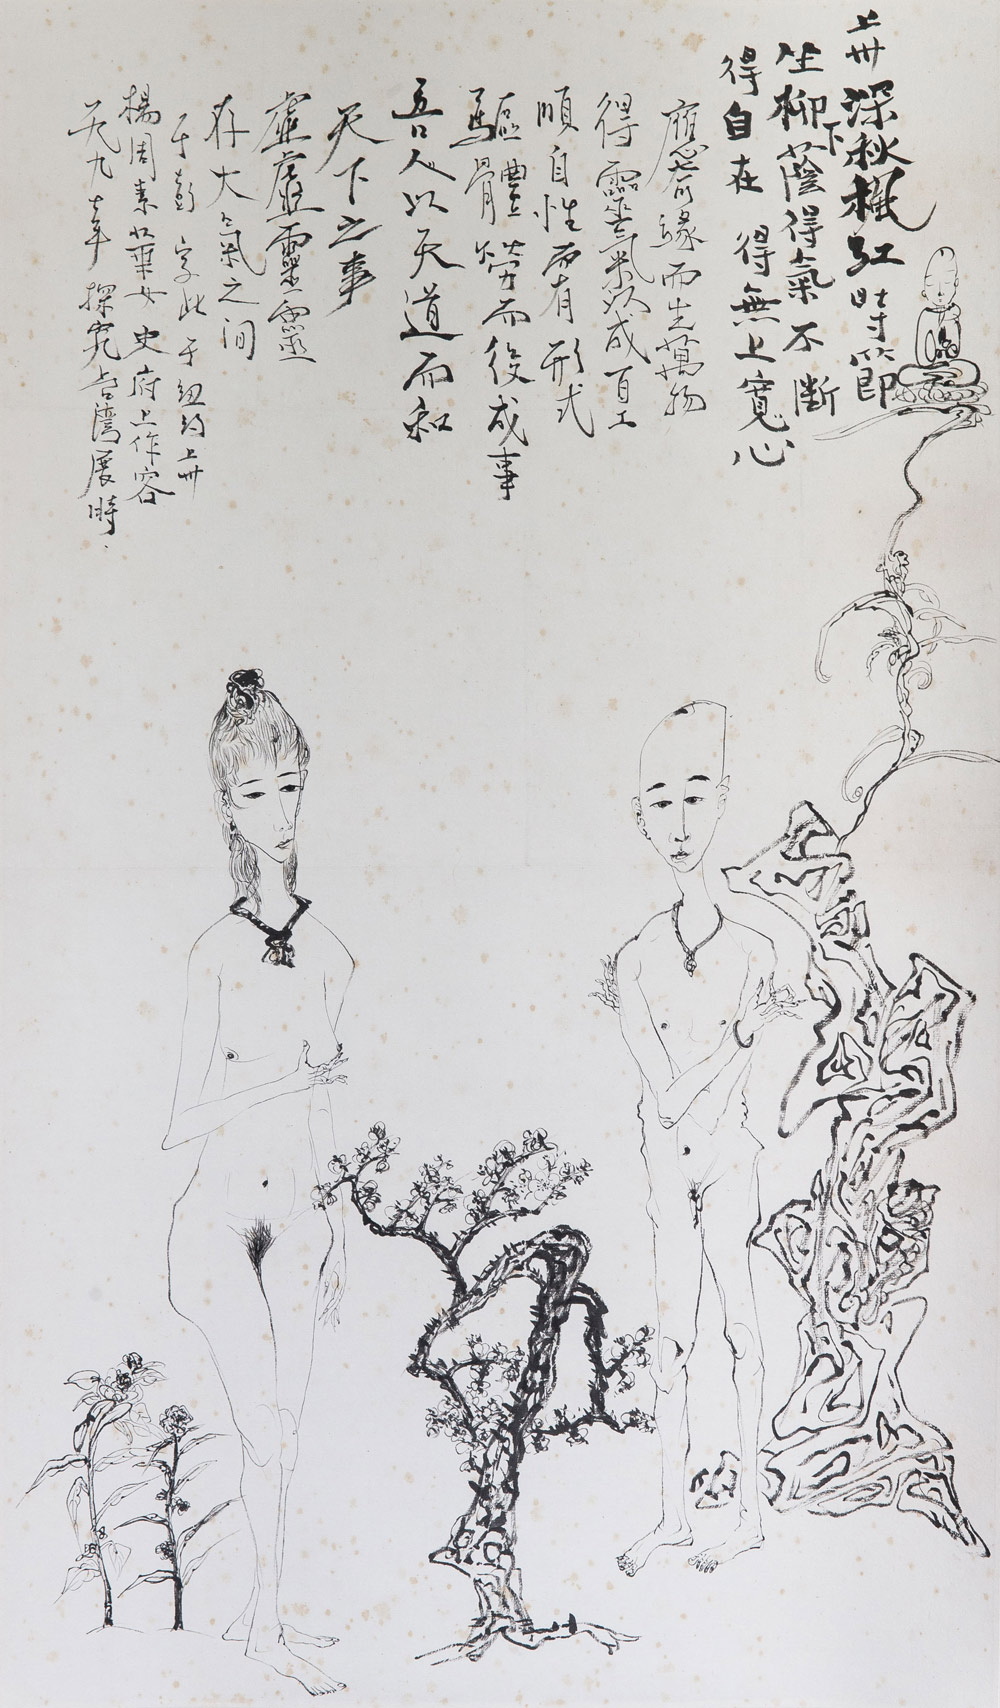 上卅深秋楓紅時節
坐柳下蔭得氣不斷
得自在 得無上寬心
應諸緣而生萬物
得靈氣於成百工
順自性而有形式
軀體骨勞而後成事
吾人以天道而和
天下之事
虛虛靈靈
存大氣之间
于彭 字此于紐約上卅
楊周素華女史府上作客
一九九一年 探究台灣展時